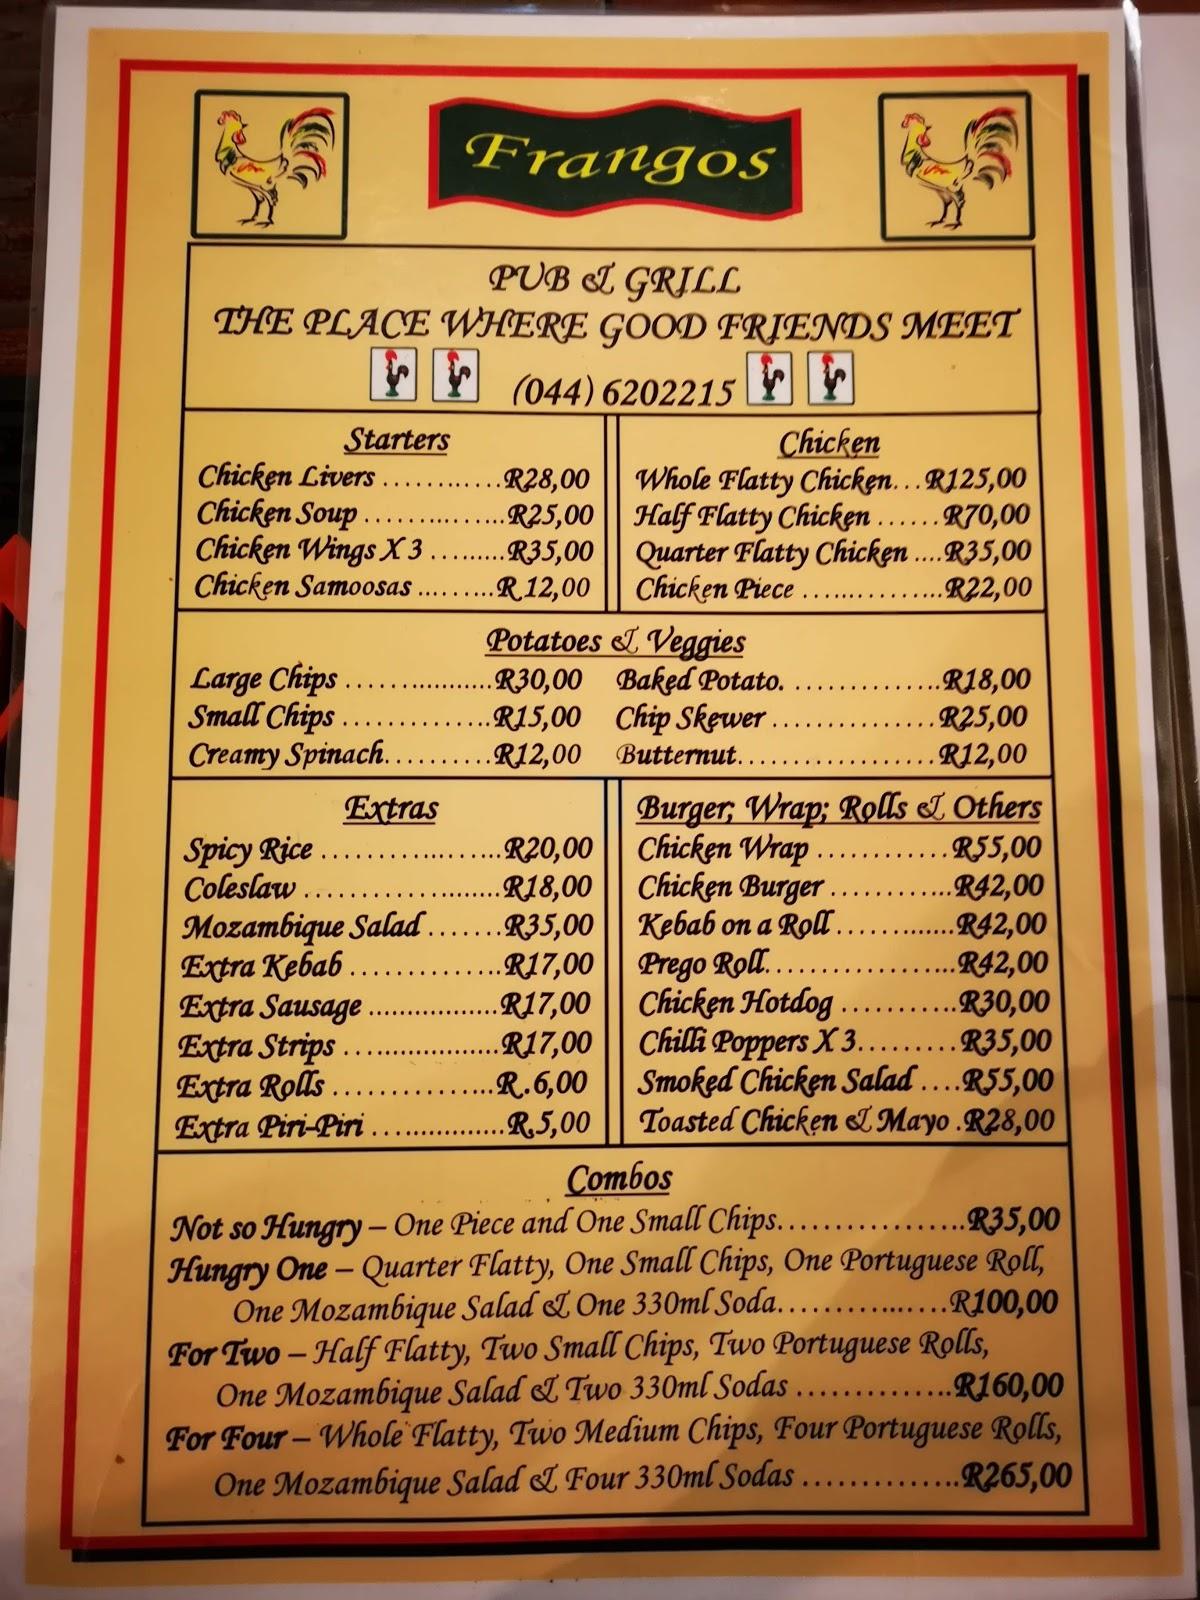 Frangos
PUB & GRILL
THE PLACE WHERE GOOD FRIENDS MEET
(044) 6202215
Starters
Chicken Livers ............R28,00
Chicken Soup ...............R25,00
Chicken Wings X 3 .........R35,00
Chicken Samoosas .........R 12,00
Chicken
Whole Flatty Chicken...R125,00
Half Flatty Chicken ......R70,00
Quarter Flatty Chicken ....R35,00
Chicken Piece ...............R22,00
Potatoes & Veggies
Large Chips ..................R30,00
Small Chips ...............R15,00
Creamy Spinach..........R12,00
Baked Potato. ...............R18,00
Chip Skewer ................R25,00
Butternut...................R12,00
Extras
Spicy Rice ...................R20,00
Coleslaw .....................R18,00
Mozambique Salad .......R35,00
Extra Kebab ...............R17,00
Extra Sausage ...................R17,00
Extra Strips .....................R17,00
Extra Rolls ...............R.6,00
Extra Piri-Piri ..................R.5,00
Burger; Wrap; Rolls & Others
Chicken Wrap ............R55,00
Chicken Burger ............R42,00
Kebab on a Roll .............R42,00
Prego Roll....................R42,00
Chicken Hotdog ...........R30,00
Chilli Poppers X 3.........R35,00
Smoked Chicken Salad ....R55,00
Toasted Chicken & Mayo .R28,00
Combos
Not so Hungry – One Piece and One Small Chips..................R35,00
Hungry One – Quarter Flatty, One Small Chips, One Portuguese Roll,
One Mozambique Salad & One 330ml Soda.................R100,00
For Two – Half Flatty, Two Small Chips, Two Portuguese Rolls,
One Mozambique Salad & Two 330ml Sodas ...............R160,00
For Four – Whole Flatty, Two Medium Chips, Four Portuguese Rolls,
One Mozambique Salad & Four 330ml Sodas ...............R265,00